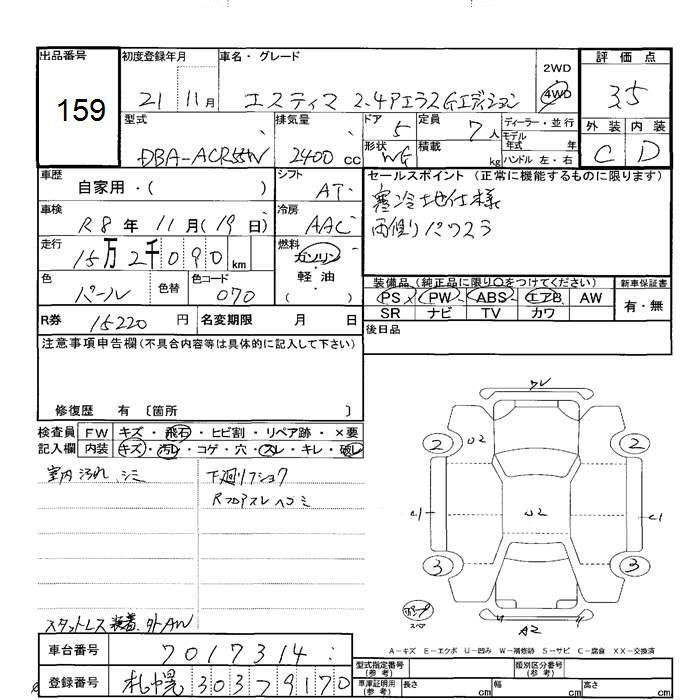 出品番号
159
初度登録年月
21年 11月
車名・グレード
エスティマ 2.4アエラスGエディション
2WD
4WD
評価点
3.5
外装 内装
C D
型式
DBA-ACR55W
排気量
2400cc
ドア
5
形状
WG
定員
7人
積載
kg
ディーラー・並行
モデル年式 年
ハンドル 左・右
車歴
自家用・( )
シフト
AT
車検
R8年 11月(19日)
冷房
AAC
走行
15万2千090km
燃料
ガソリン
軽油
( )
色
パール
色替
色コード
070
R券 15220円
名変期限 月 日
セールスポイント(正常に機能するものに限ります)
寒冷地仕様
両側パワスラ
装備品(純正品に限り○をつけてください)
PS PW ABS エアB AW
SR ナビ TV カワ
新車保証書
有・無
後日品
注意事項申告欄(不具合内容等は具体的に記入して下さい)
修復歴 有 〔箇所 〕
検査員記入欄
FW キズ・飛石・ヒビ割・リペア跡・×要
内装 キズ・汚レ・コゲ・穴・スレ・キレ・破レ
室内汚れ シミ
下廻りフショク
Rフロアスレヘコミ
スタットレス装着 外AW
U2
U2
2 2
3 3
A2
スペア
A-キズ E-エクボ U-凹み W-補修跡 S-サビ C-腐食 XX-交換済
車台番号
7017314
登録番号
札幌 303 ソ 9170
型式指定番号(参考)
類別区分番号(参考)
車庫証明用(参考)
長さ cm 幅 cm 高さ cm